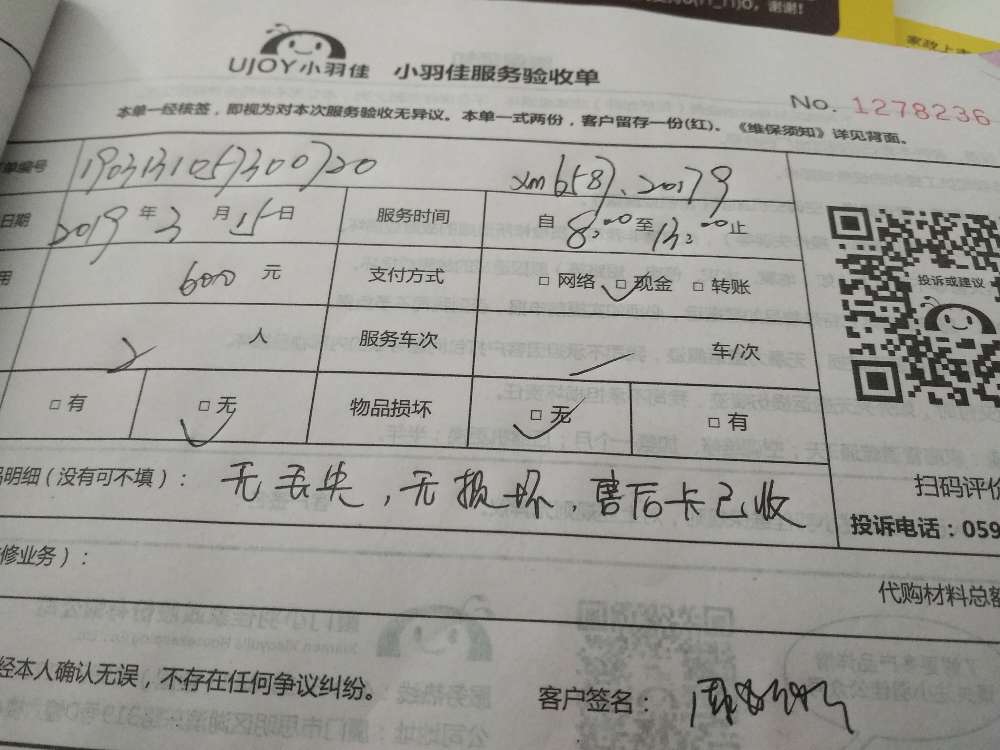 谢谢!
家政上
UJOY小羽佳 小羽佳服务验收单
No. 1278236
本单一经核签，即视为对本次服务验收无异议。本单一式两份，客户留存一份(红)。《维保须知》详见背面。
单编号 1903131057300720
日期 2019年3月15日 服务时间 自8:00至13:00止
用 600元 支付方式 □网络 □现金 □转账
2人 服务车次 车/次
□有 □无 物品损坏 □无 □有
投诉或建议
明细(没有可不填)： 无丢失，无损坏，售后卡已收
扫码评价
投诉电话：059
修业务)：
代购材料总额
经本人确认无误，不存在任何争议纠纷。
客户签名：